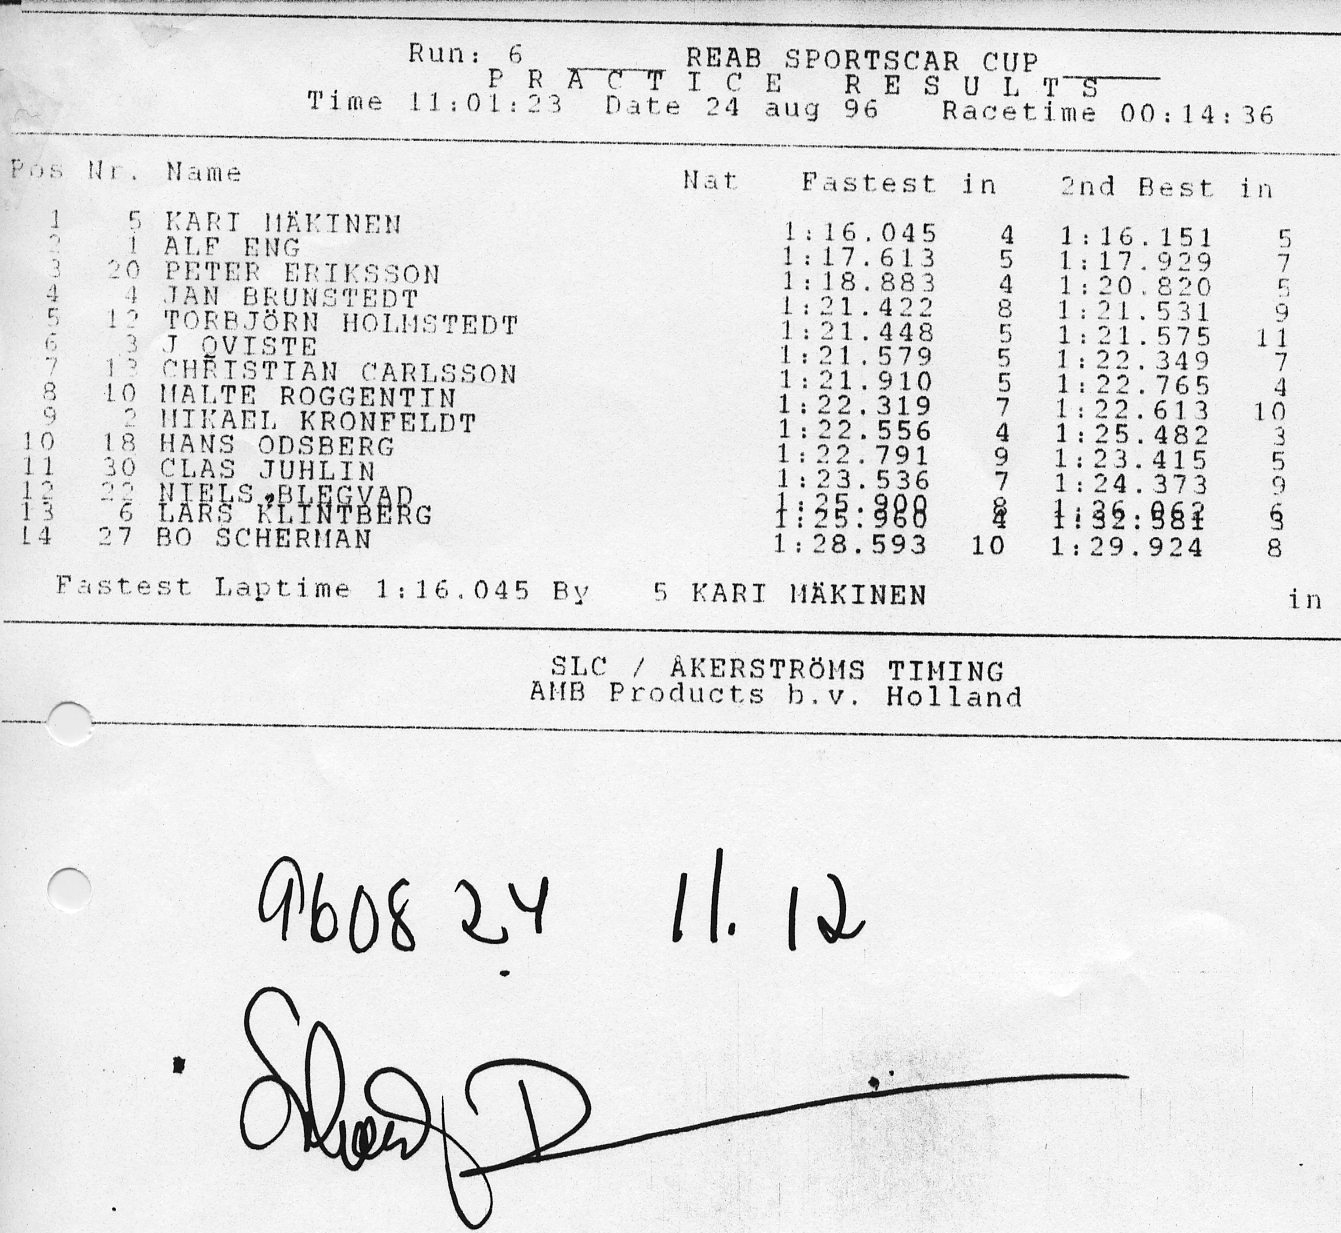 Run: 6 REAB SPORTSCAR CUP
P R A C T I C E R E S U L T S
Time 11:01:23 Date 24 aug 96 Racetime 00:14:36
Pos Nr. Name Nat Fastest in 2nd Best in
1 5 KARI MÄKINEN 1:16.045 4 1:16.151 5
2 1 ALF ENG 1:17.613 5 1:17.929 7
3 20 PETER ERIKSSON 1:18.883 4 1:20.820 5
4 4 JAN BRUNSTEDT 1:21.422 8 1:21.531 9
5 12 TORBJÖRN HOLMSTEDT 1:21.448 5 1:21.575 11
6 3 J QVISTE 1:21.579 5 1:22.349 7
7 13 CHRISTIAN CARLSSON 1:21.910 5 1:22.765 4
8 10 MALTE ROGGENTIN 1:22.319 7 1:22.613 10
9 2 MIKAEL KRONFELDT 1:22.556 4 1:25.482 3
10 18 HANS ODSBERG 1:22.791 9 1:23.415 5
11 30 CLAS JUHLIN 1:23.536 7 1:24.373 9
12 22 NIELS BLEGVAD 1:25.900 8 1:26.062 6
13 6 LARS KLINTBERG 1:25.960 4 1:32.581 3
14 27 BO SCHERMAN 1:28.593 10 1:29.924 8
Fastest Laptime 1:16.045 By 5 KARI MÄKINEN in
SLC / ÅKERSTRÖMS TIMING
AMB Products b.v. Holland
960824 11.12